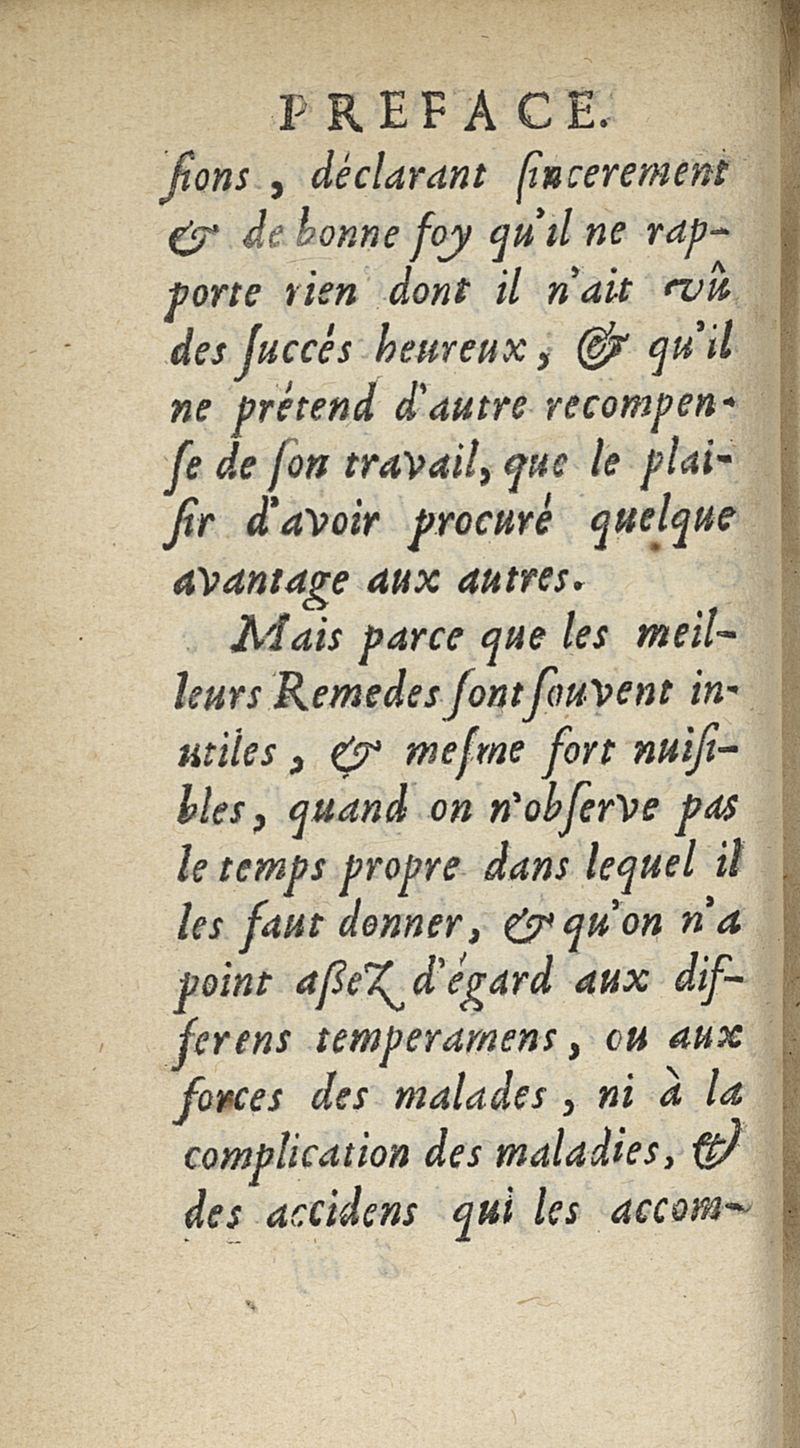 PREFACE.
ſions , déclarant ſincerement
& de bonne foy qu'il ne rap-
porte rien dont il n'ait vû
des ſuccés heureux, & qu'il
ne prétend d'autre recompen-
ſe de ſon travail, que le plai-
ſir d'avoir procuré quelque
avantage aux autres.
Mais parce que les meil-
leurs Remedes ſont ſouvent in-
utiles , & meſme fort nuiſi-
bles, quand on n'obſerve pas
le temps propre dans lequel il
les faut donner, & qu'on n'a
point aſſez d'égard aux dif-
ferens temperamens, ou aux
forces des malades , ni à la
complication des maladies, &
des accidens qui les accom-